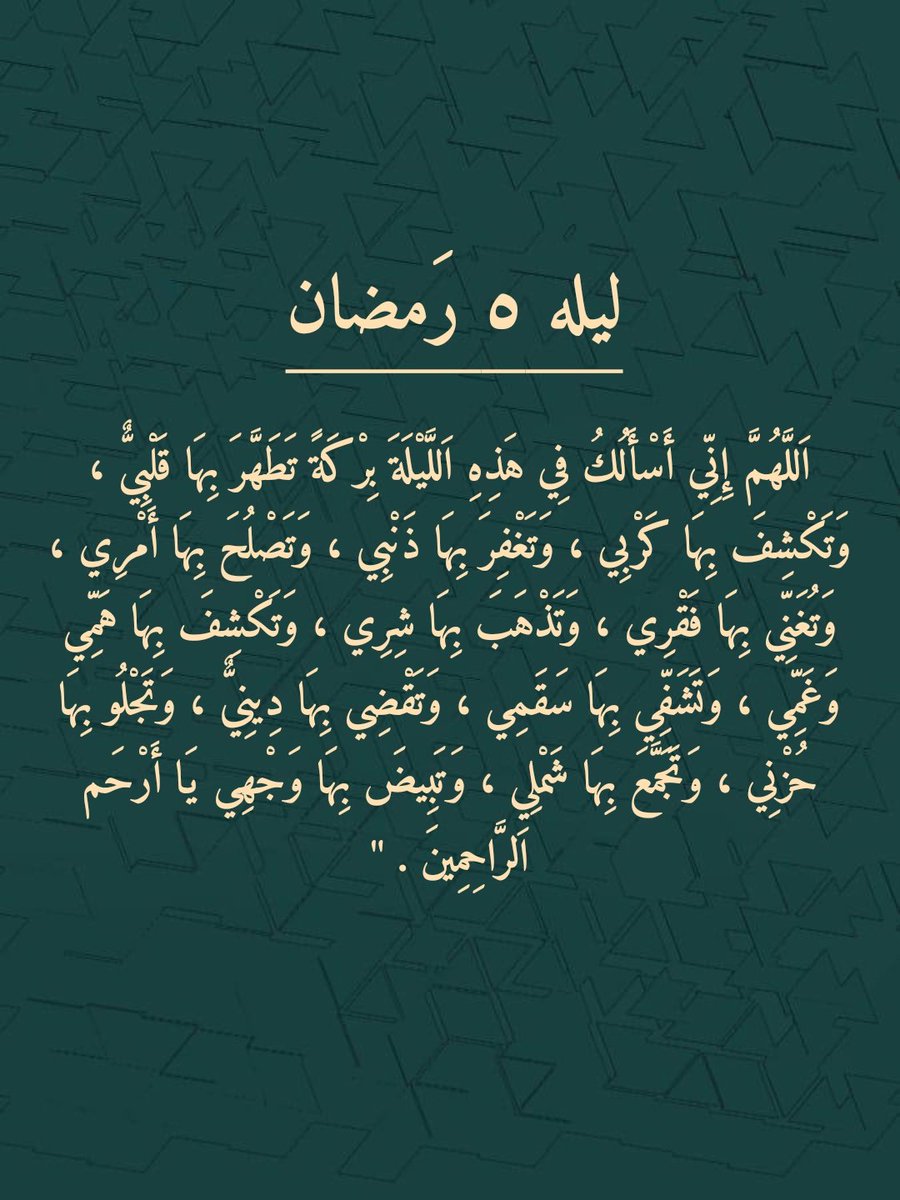 ليله ٥ رَمضان
اَللَّهُمَّ إِنِّي أَسْأَلُكُ فِي هَذِهِ اَللَّيْلَةَ بِرْكَةً تَطَهَّرَ بِهَا قَلْبِيٌّ ،
وَتَكْشِفَ بِهَا كَرْبِي ، وَتَغْفِرَ بِهَا ذَنْبِي ، وَتَصْلُحَ بِهَا أَمْرِي ،
وَتُغَنِّي بِهَا فَقْرِي ، وَتَذْهَبَ بِهَا شِرِي ، وَتَكْشِفَ بِهَا هَمِّي
وَغَمِّي ، وَتَشَفِّي بِهَا سَقَمِي ، وَتَقْضِي بِهَا دِينِيٌّ ، وَتَجْلُو بِهَا
حُزْنِي ، وَتَجَمَّعَ بِهَا شَملِي ، وَتَبِيضَ بِهَا وَجْهِي يَا أَرْحَم
اَلرَّاحِمِينَ . "